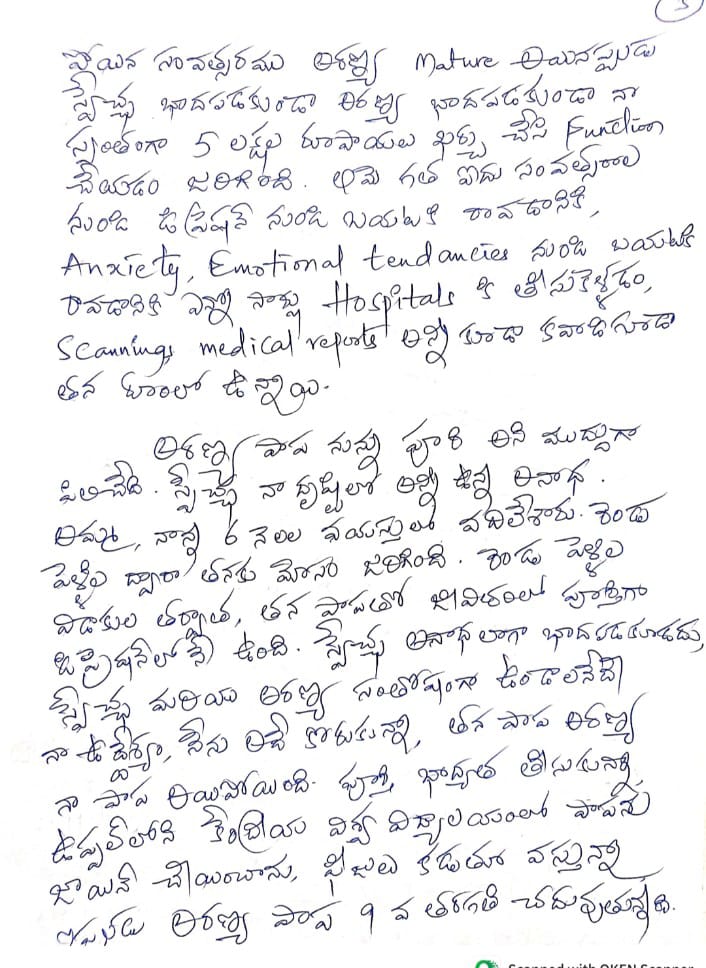 3
పోయిన సంవత్సరము అరణ్య Mature అయినప్పుడు
స్వేచ్ఛ భాదపడకుండా అరణ్య భాదపడకుండా నా
స్వంతంగా 5 లక్షల రూపాయలు ఖర్చు చేసి Function
చేయడం జరిగింది. ఆమె గత ఐదు సంవత్సరాల
నుండి డిప్రెషన్ నుండి బయటకి రావడానికి,
Anxiety, Emotional tendancies నుండి బయటకి
రావడానికి ఎన్నో సార్లు Hospitals కి తీసుకెళ్ళడం,
Scannings medical reports అన్ని కూడా కవాడిగూడా
తన రూంలో ఉన్నాయి.
అరణ్య పాప నన్ను పూరి అని ముద్దుగా
పిలిచేది. స్వేచ్ఛ నా దృష్టిలో అన్నీ ఉన్న అనాధ.
అమ్మా, నాన్న 6 నెలల వయస్సులో వదిలేశారు. రెండు
పెళ్ళిల ద్వారా తనకు మోసం జరిగింది. రెండు పెళ్ళిల
విడాకుల తర్వాత, తన పాపతో జీవితంలో పూర్తిగా
డిప్రెషన్‌లోనే ఉంది. స్వేచ్ఛ అనాధలాగా భాదపడకూడదు,
స్వేచ్ఛ మరియు అరణ్య సంతోషంగా ఉండాలనేదే
నా ఉద్దేశ్యం, నేను అదే కోరుకున్నా, తన పాప అరణ్య
నా పాప అయిపోయింది. పూర్తి భాద్యత తీసుకున్నా
ఉప్పల్‌లోని కేంద్రీయ విశ్వ విద్యాలయంలో పాపను
జాయిన్ చేయించాను, ఫీజులు కడుతూ వస్తున్నా
ఇప్పుడు అరణ్య పాప 9 వ తరగతి చదువుతున్నది.